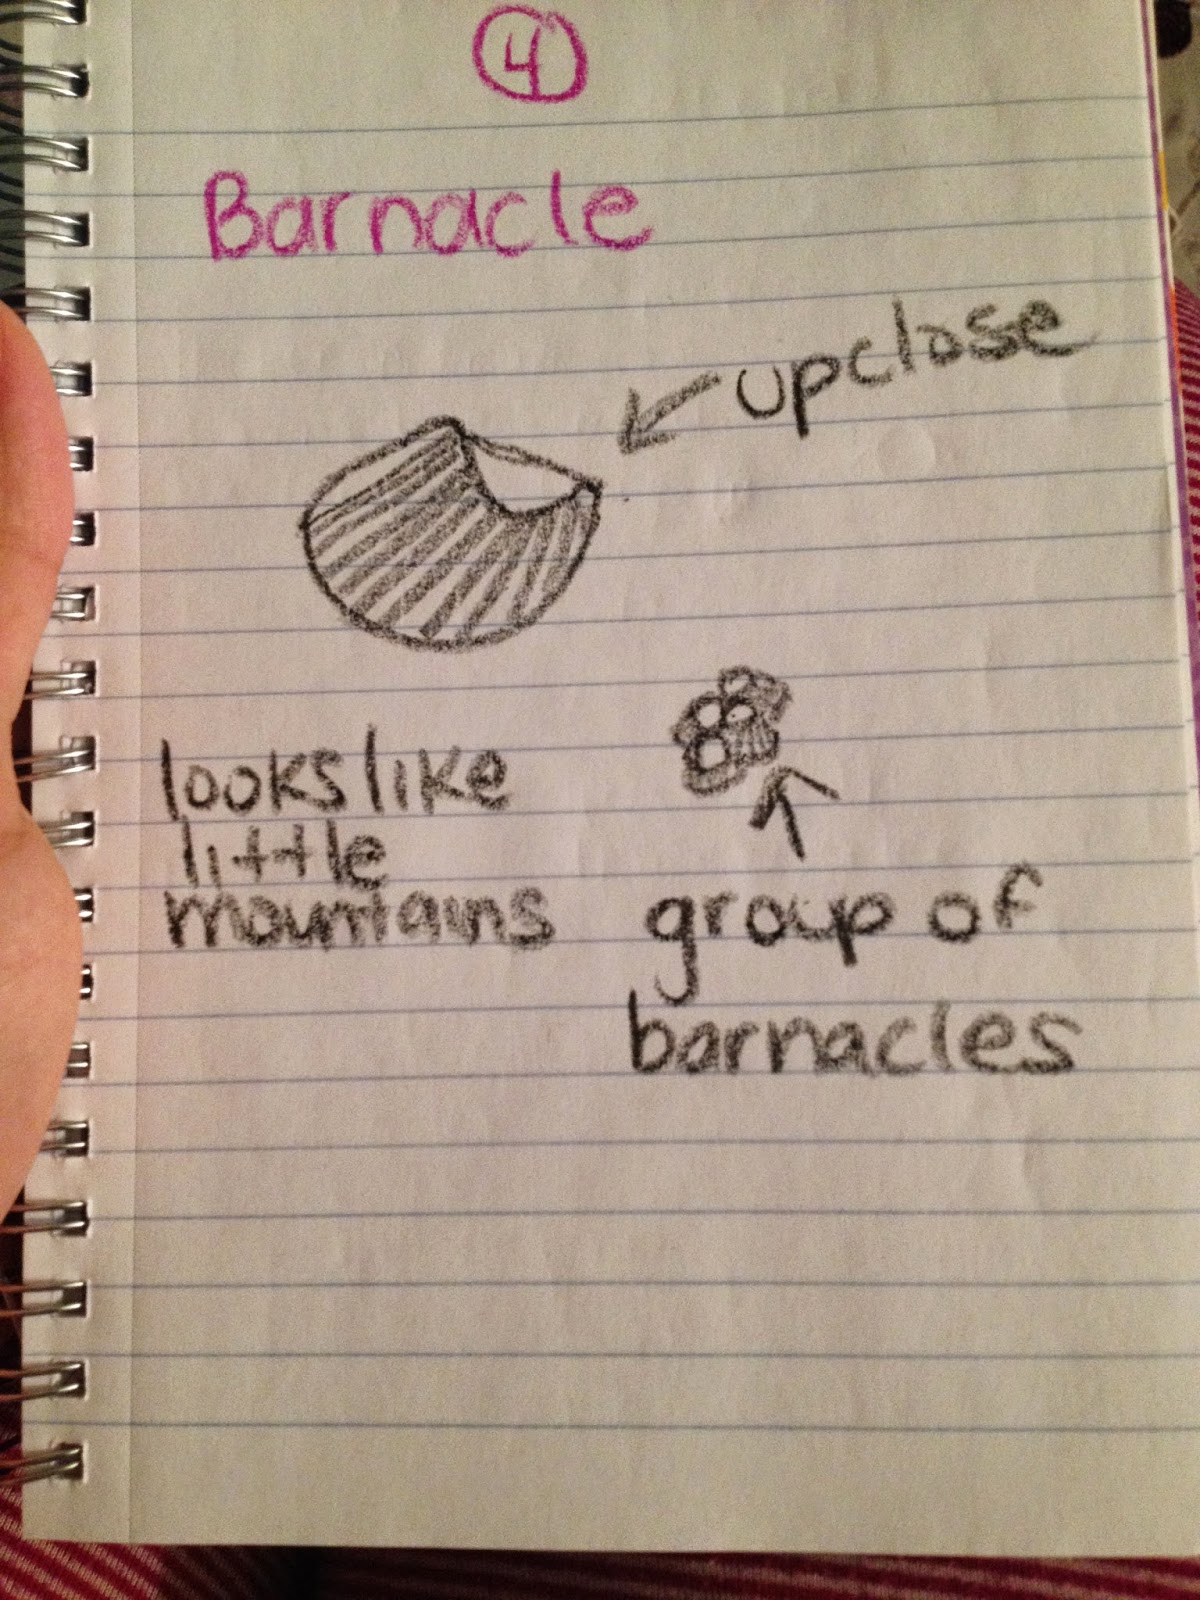 4
Barnacle
upclose
looks like
little
mountains
group of
barnacles